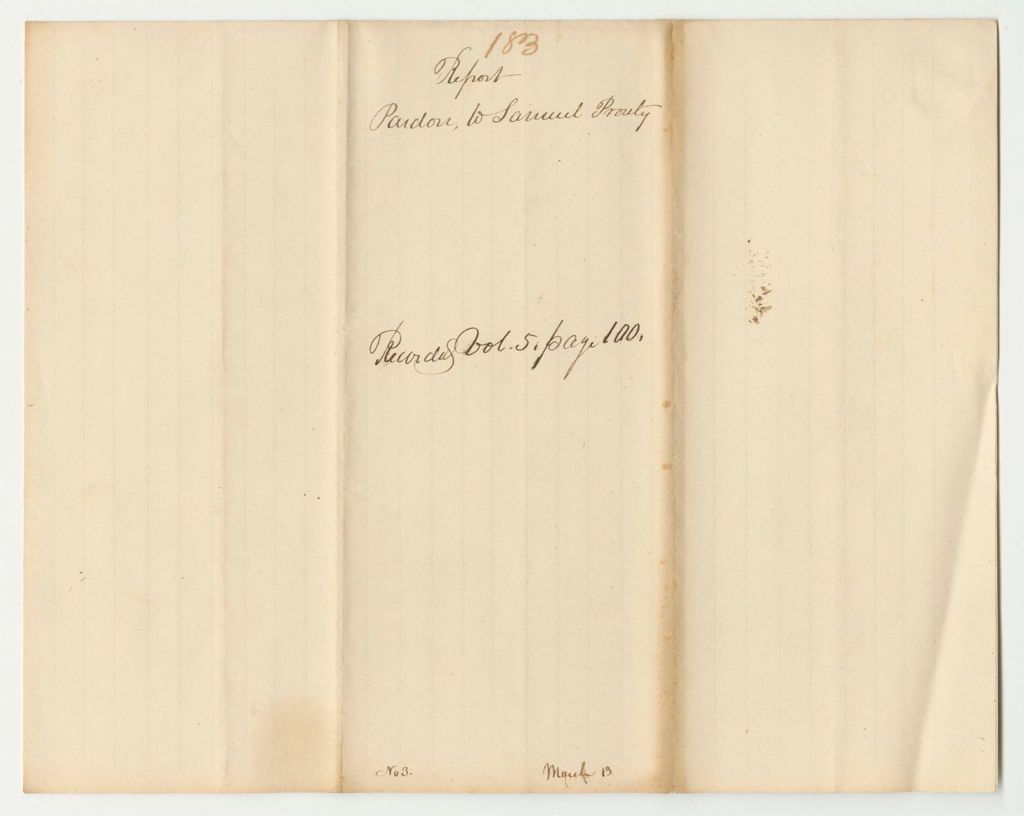 183
Report
Pardon, to Samuel Prouty
Recorded Vol. 5. page 100.
No 3.
March 13